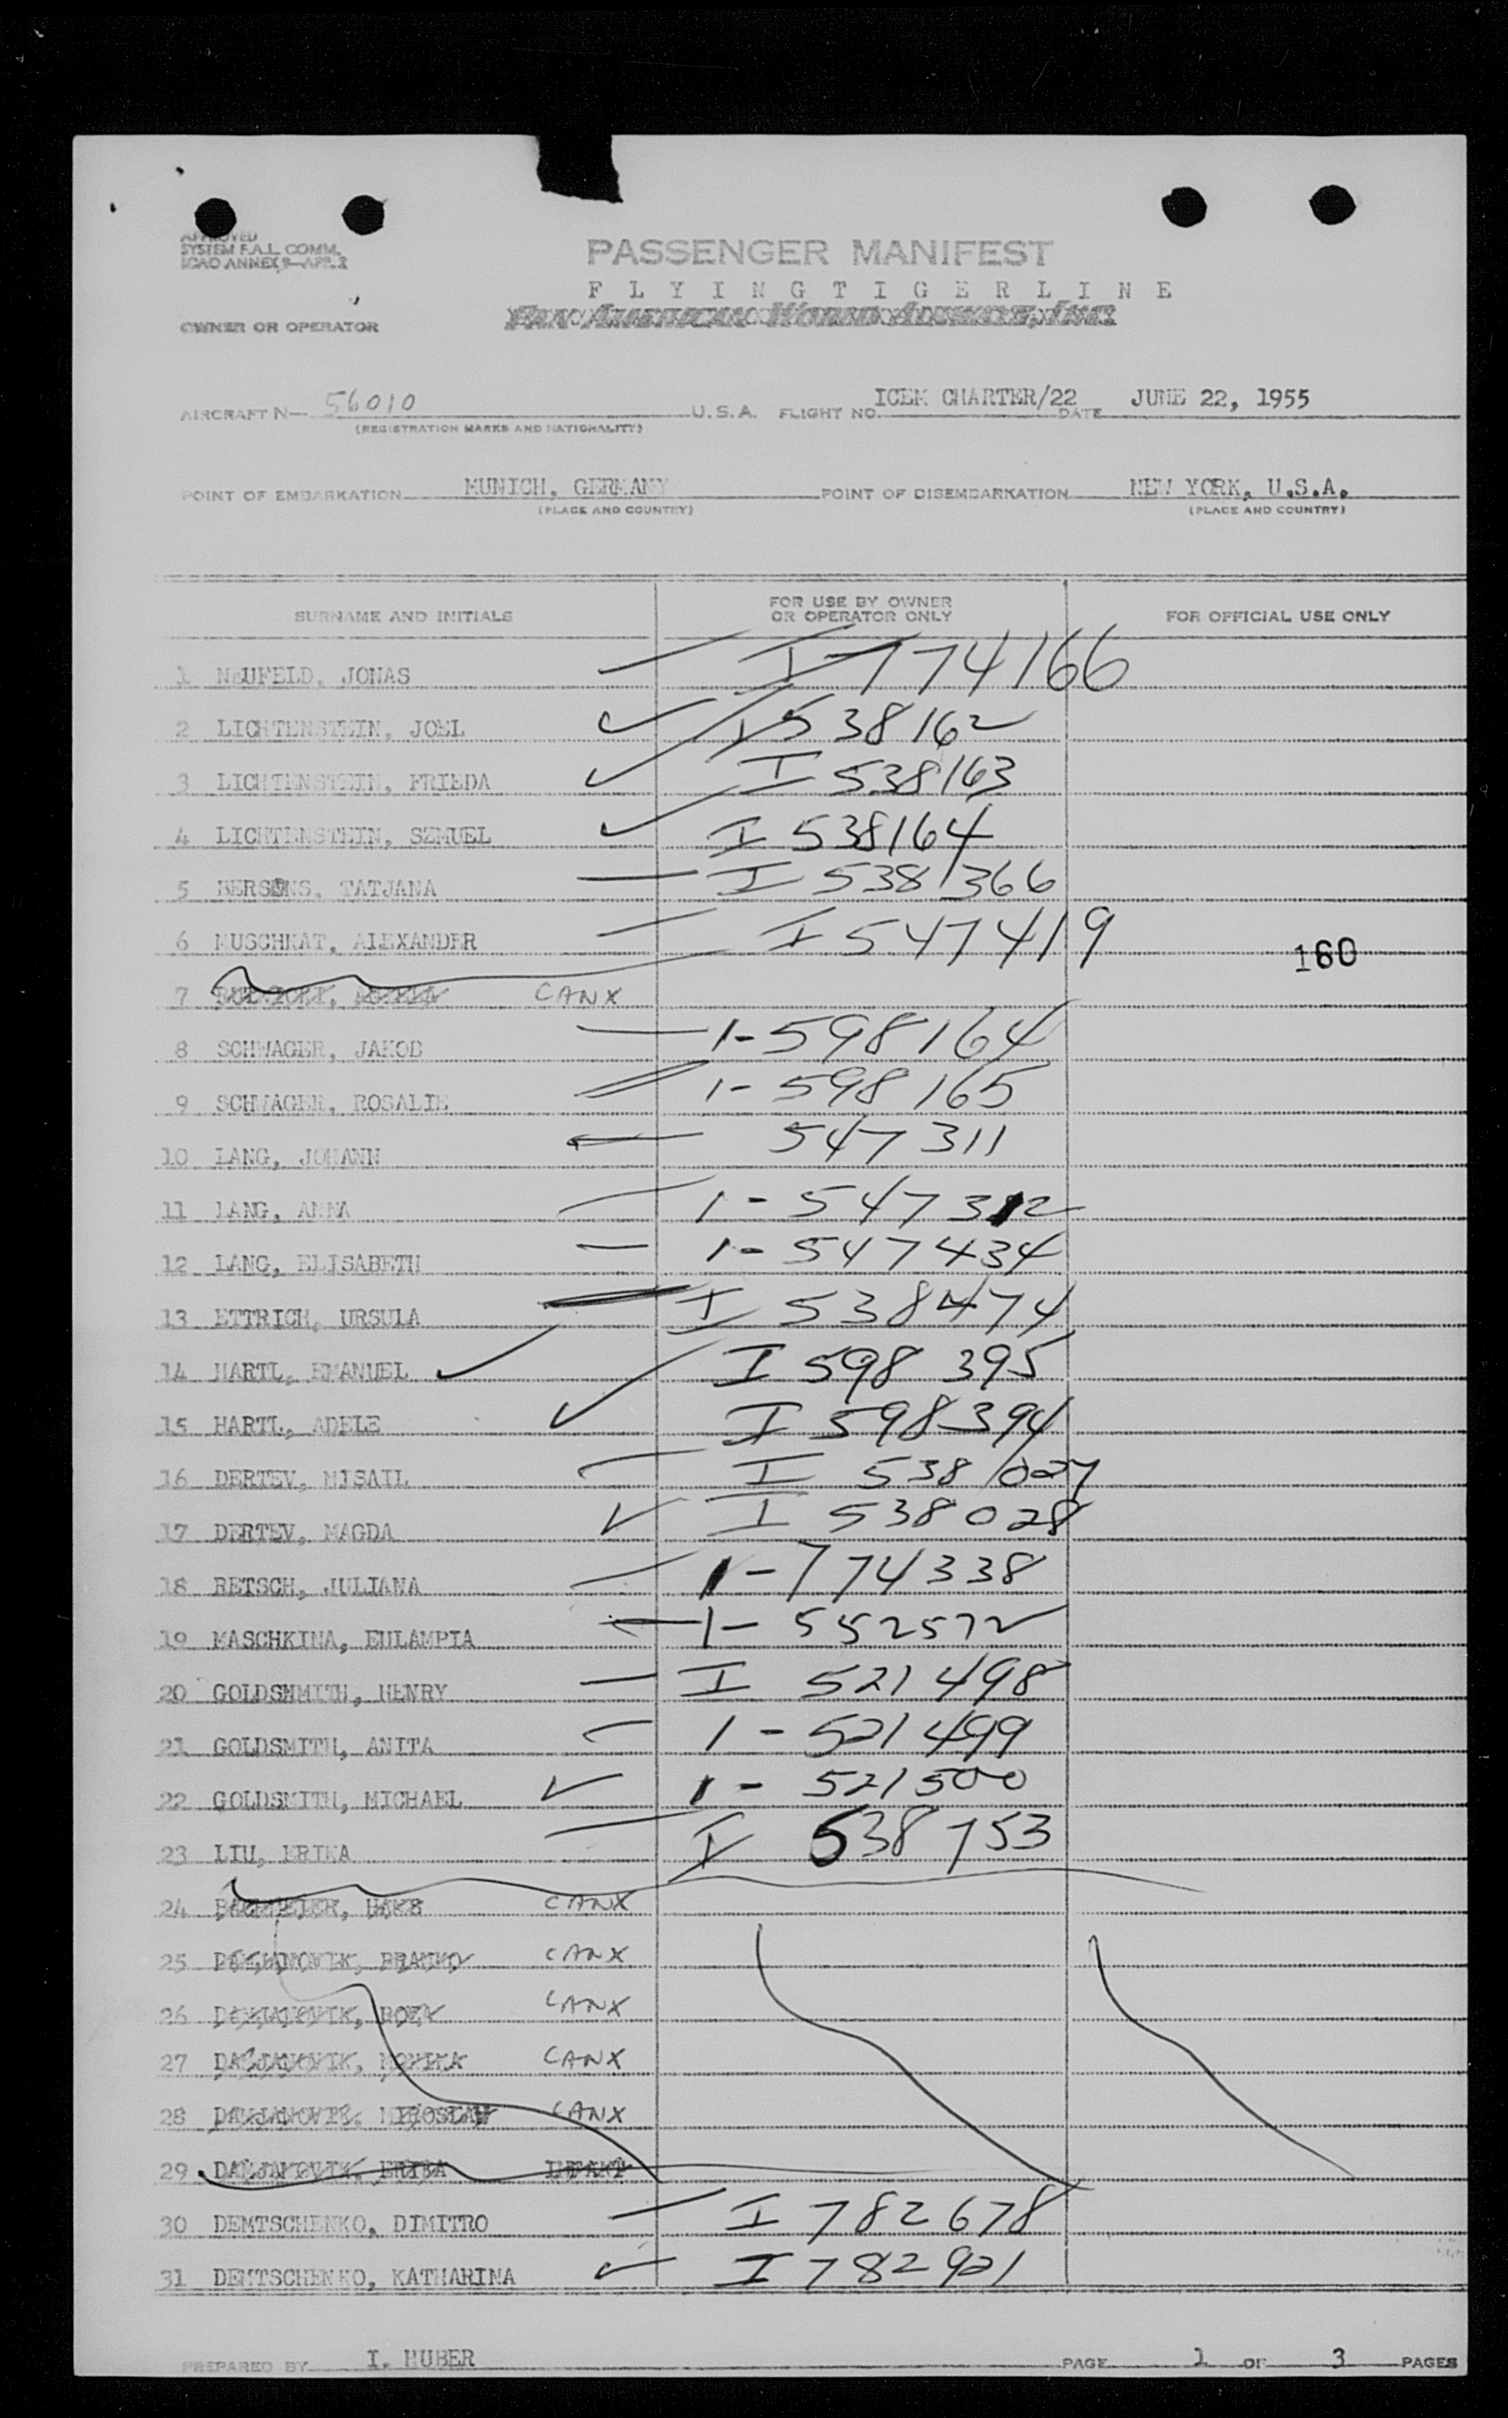 APPROVED
SYSTEM F.A.L. COMM.
ICAO ANNEX 9—APP. 2
PASSENGER MANIFEST
F L Y I N G T I G E R L I N E
PAN AMERICAN WORLD AIRWAYS, INC.
OWNER OR OPERATOR
AIRCRAFT N— 56010 U.S.A. FLIGHT NO. ICEM CHARTER/22 DATE JUNE 22, 1955
(REGISTRATION MARKS AND NATIONALITY)
POINT OF EMBARKATION MUNICH, GERMANY POINT OF DISEMBARKATION NEW YORK, U.S.A.
(PLACE AND COUNTRY) (PLACE AND COUNTRY)
SURNAME AND INITIALS FOR USE BY OWNER OR OPERATOR ONLY FOR OFFICIAL USE ONLY
1 NEUFELD, JONAS I 774166
2 LICHTENSTEIN, JOEL I 538162
3 LICHTENSTEIN, FRIEDA I 538163
4 LICHTENSTEIN, SZMUEL I 538164
5 BERSENS, TATJANA I 538366
6 MUSCHKAT, ALEXANDER I 547419 160
7 CANX
8 SCHWAGER, JAKOB 1-598164
9 SCHWAGER, ROSALIE 1-598165
10 LANG, JOHANN 547311
11 LANG, ANNA 1-547312
12 LANG, ELISABETH 1-547434
13 ETTRICH, URSULA I 538474
14 HARTL, EMANUEL I 598 395
15 HARTL, ADELE I 598394
16 DERTEV, MISAIL I 538027
17 DERTEV, MAGDA I 538028
18 RETSCH, JULIANA 1-774338
19 MASCHKINA, EULAMPIA 1-552572
20 GOLDSMMITH, HENRY I 521498
21 GOLDSMITH, ANITA 1-521499
22 GOLDSMITH, MICHAEL 1-521500
23 LIU, ERIKA I 538753
24 CANX
25 CANX
26 CANX
27 DAMJANOVIK, MONIKA CANX
28 DAMJANOVIK, MIROSLAW CANX
29 DAMJANOVIK, ERIKA INFANT
30 DEMTSCHENKO, DIMITRO I 782678
31 DEMTSCHENKO, KATHARINA I 782921
PREPARED BY I. HUBER PAGE 1 OF 3 PAGES